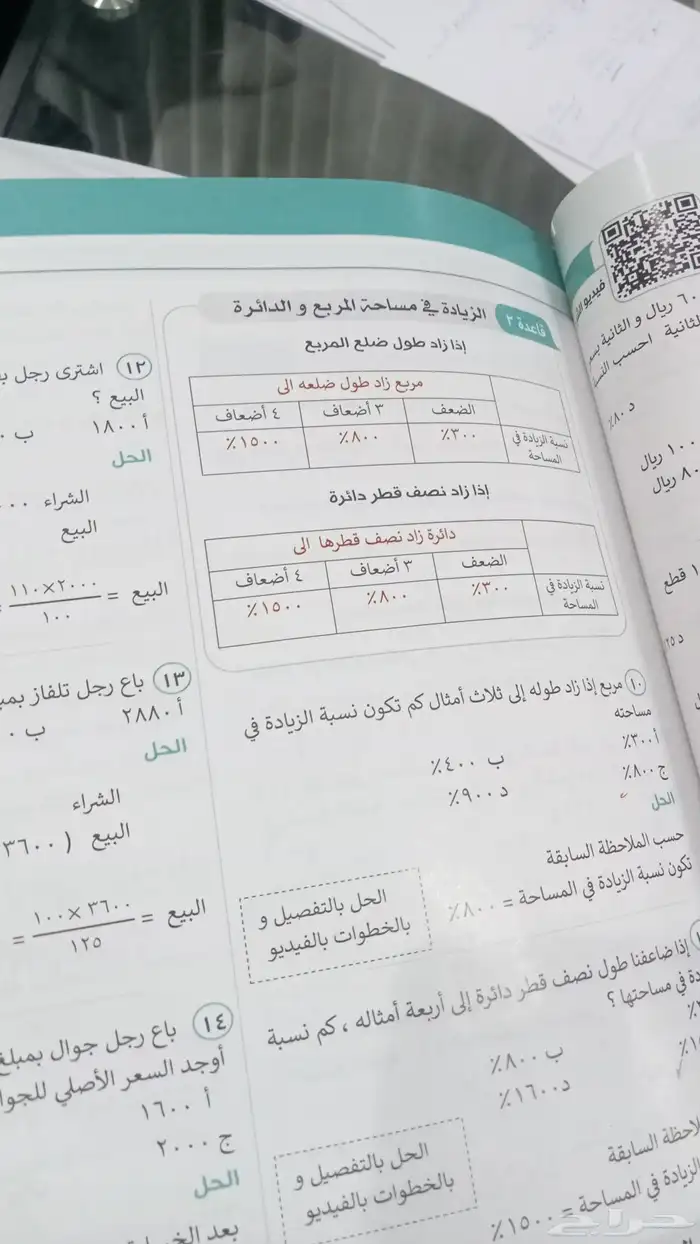 فيديو
٦٠ ريال و الثانية
الثانية احسب
د ٨٠٪
١٠٠ ريال
٨٠ ريال
١ قطع
د ٢٥
قاعدة ٢
الزيادة في مساحة المربع و الدائرة
إذا زاد طول ضلع المربع
مربع زاد طول ضلعه الى
الضعف ٣ أضعاف ٤ أضعاف
نسبة الزيادة في المساحة ٣٠٠٪ ٨٠٠٪ ١٥٠٠٪
إذا زاد نصف قطر دائرة
دائرة زاد نصف قطرها الى
الضعف ٣ أضعاف ٤ أضعاف
نسبة الزيادة في المساحة ٣٠٠٪ ٨٠٠٪ ١٥٠٠٪
١٠ مربع إذا زاد طوله إلى ثلاث أمثال كم تكون نسبة الزيادة في
مساحته
أ ٣٠٠٪ ب ٤٠٠٪
ج ٨٠٠٪ د ٩٠٠٪
الحل
حسب الملاحظة السابقة
تكون نسبة الزيادة في المساحة = ٨٠٠٪
الحل بالتفصيل و
بالخطوات بالفيديو
إذا ضاعفنا طول نصف قطر دائرة إلى أربعة أمثاله ، كم نسبة
في مساحتها ؟
ب ٨٠٠٪
د ١٦٠٠٪
السابقة
الزيادة في المساحة = ١٥٠٠٪
الحل بالتفصيل و
بالخطوات بالفيديو
١٢ اشترى رجل
البيع ؟
أ ١٨٠٠ ب
الحل
الشراء
البيع
البيع = ٢٠٠٠×١١٠
١٠٠
١٣ باع رجل تلفاز
أ ٢٨٨٠ ب
الحل
الشراء
البيع ( ٣٦٠٠
البيع = ٣٦٠٠ × ١٠٠ =
١٢٥
١٤ باع رجل جوال بمبلغ
أوجد السعر الأصلي
أ ١٦٠٠
ج ٢٠٠٠
الحل
بعد
حراج